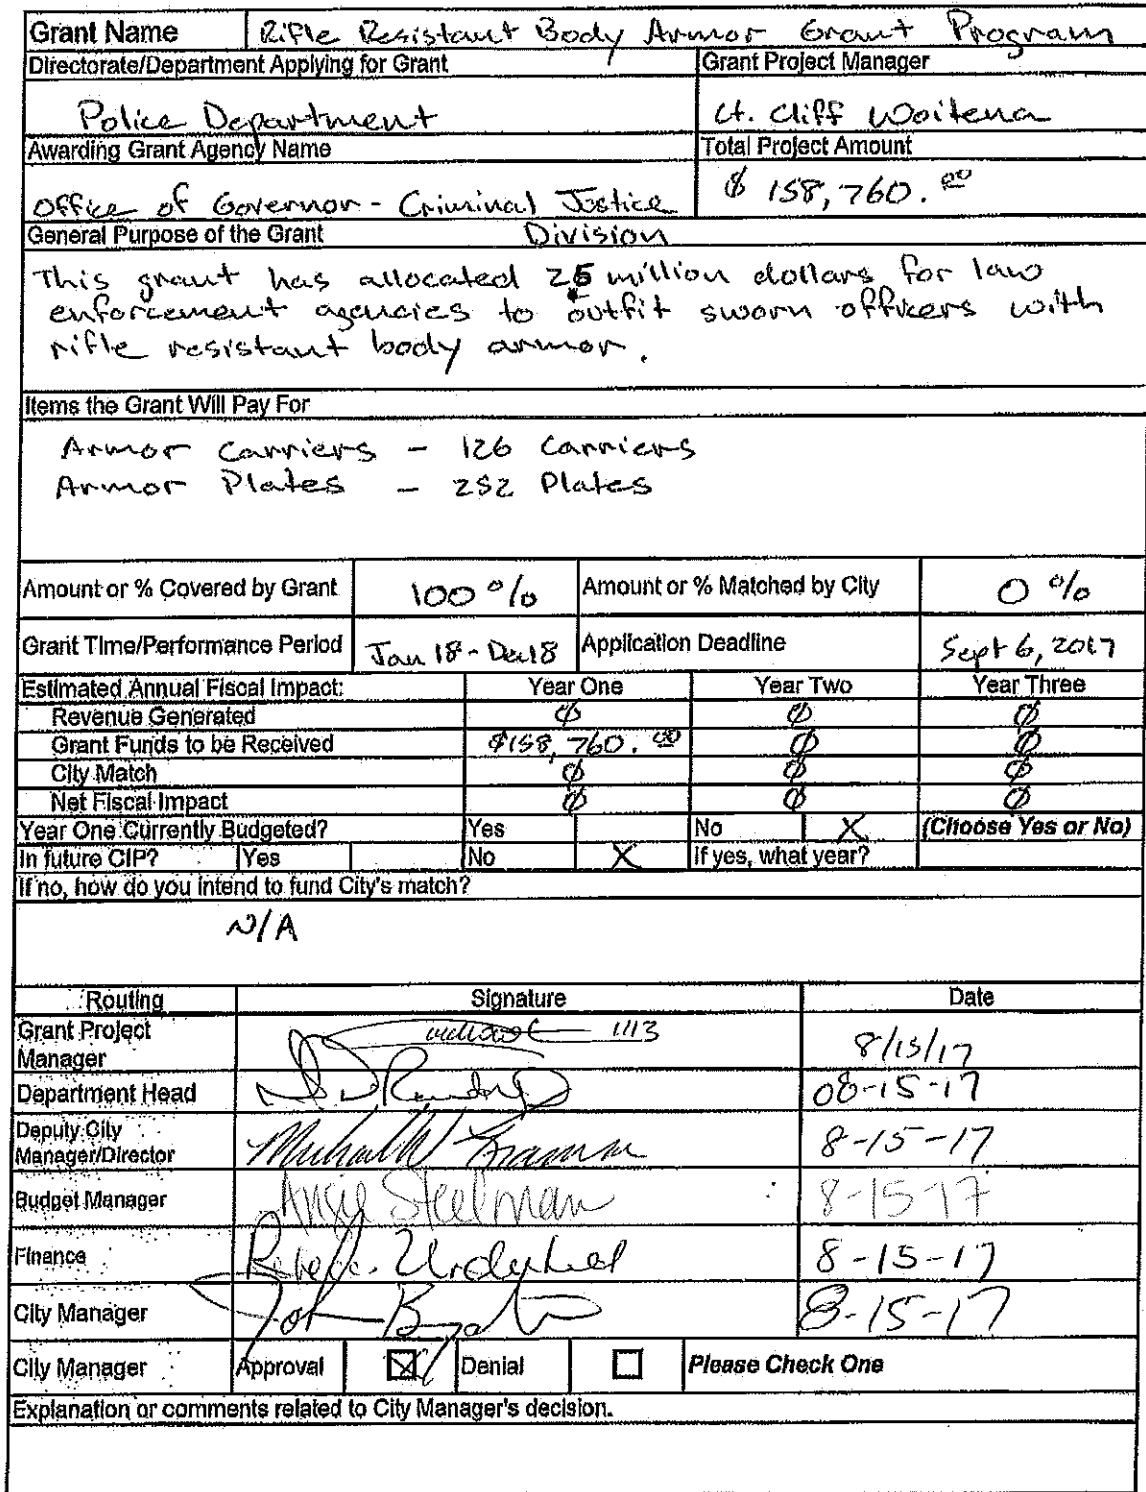 Grant Name Rifle Resistant Body Armor Grant Program
Directorate/Department Applying for Grant Grant Project Manager
Police Department Lt. Cliff Woitena
Awarding Grant Agency Name Total Project Amount
Office of Governor - Criminal Justice $ 158,760.00
General Purpose of the Grant Division
This grant has allocated 25 million dollars for law
enforcement agencies to outfit sworn officers with
rifle resistant body armor.
Items the Grant Will Pay For
Armor Carriers - 126 Carriers
Armor Plates - 252 Plates
Amount or % Covered by Grant 100% Amount or % Matched by City 0%
Grant Time/Performance Period Jan 18 - Dec 18 Application Deadline Sept 6, 2017
Estimated Annual Fiscal Impact: Year One Year Two Year Three
Revenue Generated Ø Ø Ø
Grant Funds to be Received $158,760.00 Ø Ø
City Match Ø Ø Ø
Net Fiscal Impact Ø Ø Ø
Year One Currently Budgeted? Yes No X (Choose Yes or No)
In future CIP? Yes No X If yes, what year?
If no, how do you intend to fund City's match?
N/A
Routing Signature Date
Grant Project
Manager 1113 8/15/17
Department Head 08-15-17
Deputy City
Manager/Director 8-15-17
Budget Manager Angie Steelman 8-15-17
Finance 8-15-17
City Manager 8-15-17
City Manager Approval ☒ Denial ☐ Please Check One
Explanation or comments related to City Manager's decision.